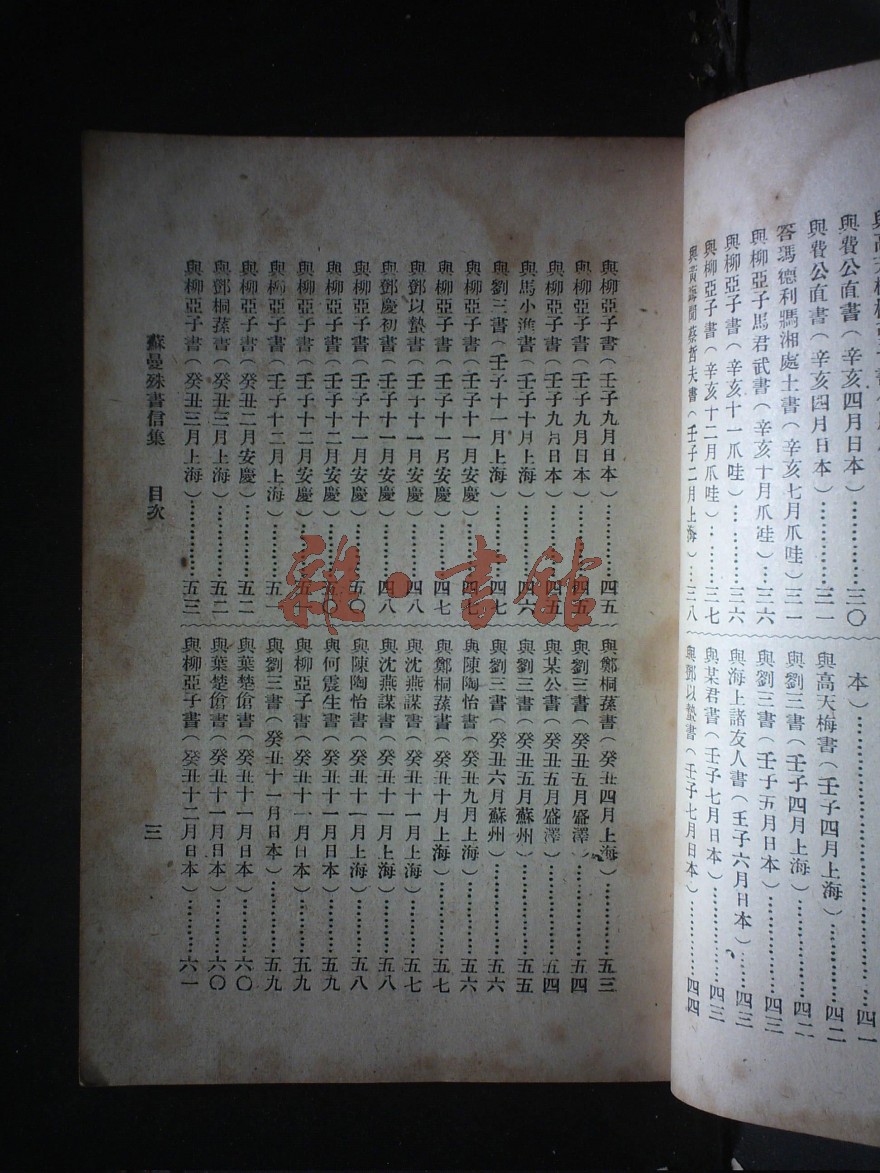 與費公直書（辛亥四月日本）……三〇
與費公直書（辛亥四月日本）……三一
答瑪德利瑪湘處士書（辛亥七月爪哇）三一
與柳亞子馬君武書（辛亥十月爪哇）…三六
與柳亞子書（辛亥十一爪哇）……三六
與柳亞子書（辛亥十二月爪哇）……三七
與黃晦聞蔡哲夫書（壬子二月上海）…三八
本）……四一
與高天梅書（壬子四月上海）……四二
與劉三書（壬子四月上海）……四二
與劉三書（壬子五月日本）……四三
與海上諸友人書（壬子六月日本）……四三
與某君書（壬子七月日本）……四三
與鄧以蟄書（壬子七月日本）……四四
與柳亞子書（壬子九月日本）……四五
與柳亞子書（壬子九月日本）……四五
與柳亞子書（壬子九月日本）……四五
與馬小進書（壬子十月上海）……四六
與劉三書（壬子十一月上海）……四七
與柳亞子書（壬子十一月安慶）……四七
與柳亞子書（壬子十一月安慶）……四七
與鄧以蟄書（壬子十一月安慶）……四八
與鄧慶初書（壬子十一月安慶）……四八
與柳亞子書（壬子十一月安慶）……五〇
與柳亞子書（壬子十二月安慶）……五〇
與柳亞子書（壬子十二月安慶）……五一
與柳亞子書（壬子十二月上海）……五一
與柳亞子書（癸丑二月安慶）……五二
與鄧桐蓀書（癸丑三月上海）……五二
與柳亞子書（癸丑三月上海）……五三
與鄭桐蓀書（癸丑四月上海）……五三
與劉三書（癸丑五月盛澤）……五四
與某公書（癸丑五月盛澤）……五四
與劉三書（癸丑五月蘇州）……五五
與劉三書（癸丑六月蘇州）……五六
與陳陶怡書（癸丑九月上海）……五六
與鄭桐蓀書（癸丑十月上海）……五七
與沈燕謀書（癸丑十一月上海）……五七
與沈燕謀書（癸丑十一月上海）……五八
與陳陶怡書（癸丑十一月上海）……五八
與何震生書（癸丑十一月日本）……五九
與柳亞子書（癸丑十一月日本）……五九
與劉三書（癸丑十一月日本）……五九
與葉楚傖書（癸丑十一月日本）……六〇
與葉楚傖書（癸丑十一月日本）……六〇
與柳亞子書（癸丑十二月日本）……六一
蘇曼殊書信集 目次
三
雜·書館